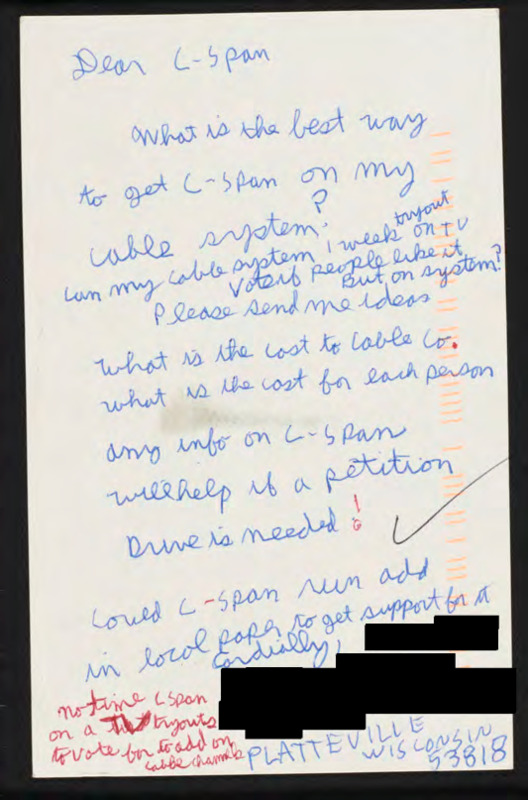 Dear C-Span
What is the best way
to get C-Span on my
cable system?
can my cable system 1 week tryout on TV
Vote if people like it
But on system?
Please send me ideas
What is the cost to Cable Co.
what is the cost for each person
any info on C-Span
will help if a petition
Drive is needed!
Could C-Span run add
in local paper to get support for it
Cordially,
no time CSpan
on a tryouts
to vote for to add on
cable channels
PLATTEVILLE
WISCONSIN
53818